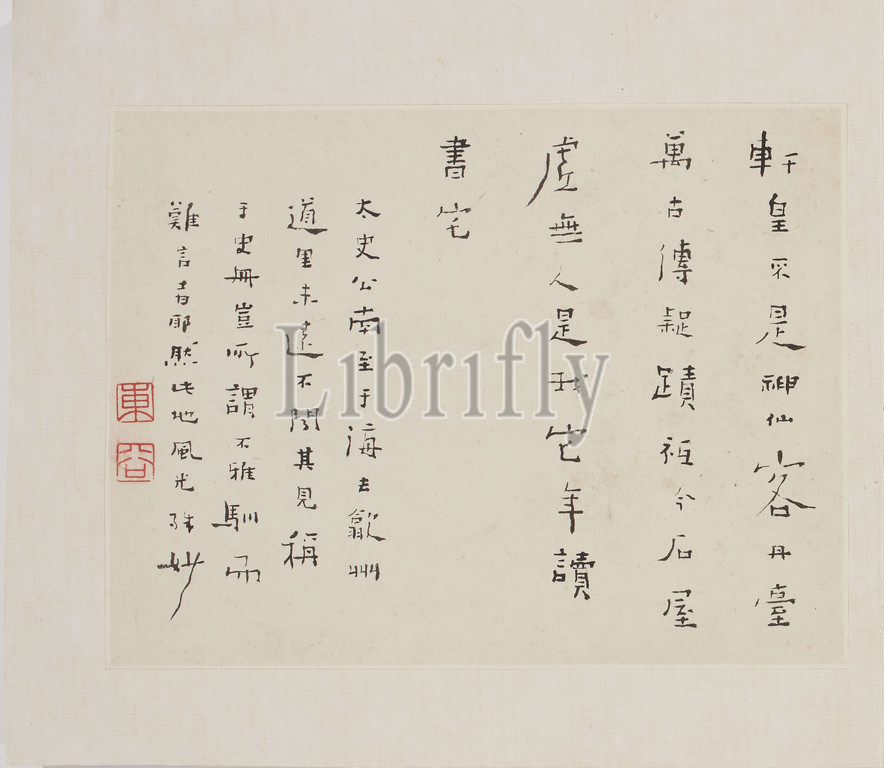 軒皇采是神仙客丹臺
萬古傳疑蹟祗今石屋
虛無人是我它年讀
書宅
太史公南至于海去歙州
道里未遠不聞其見稱
于史冊豈所謂不雅馴而
難言者耶然此地風光殊妙
東谷
Librifly